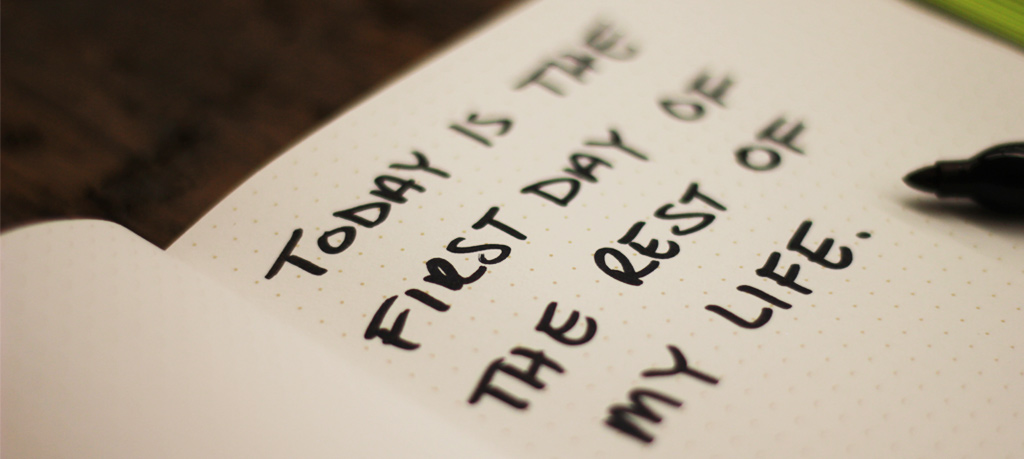 TODAY IS THE
FIRST DAY OF
THE REST OF
MY LIFE.